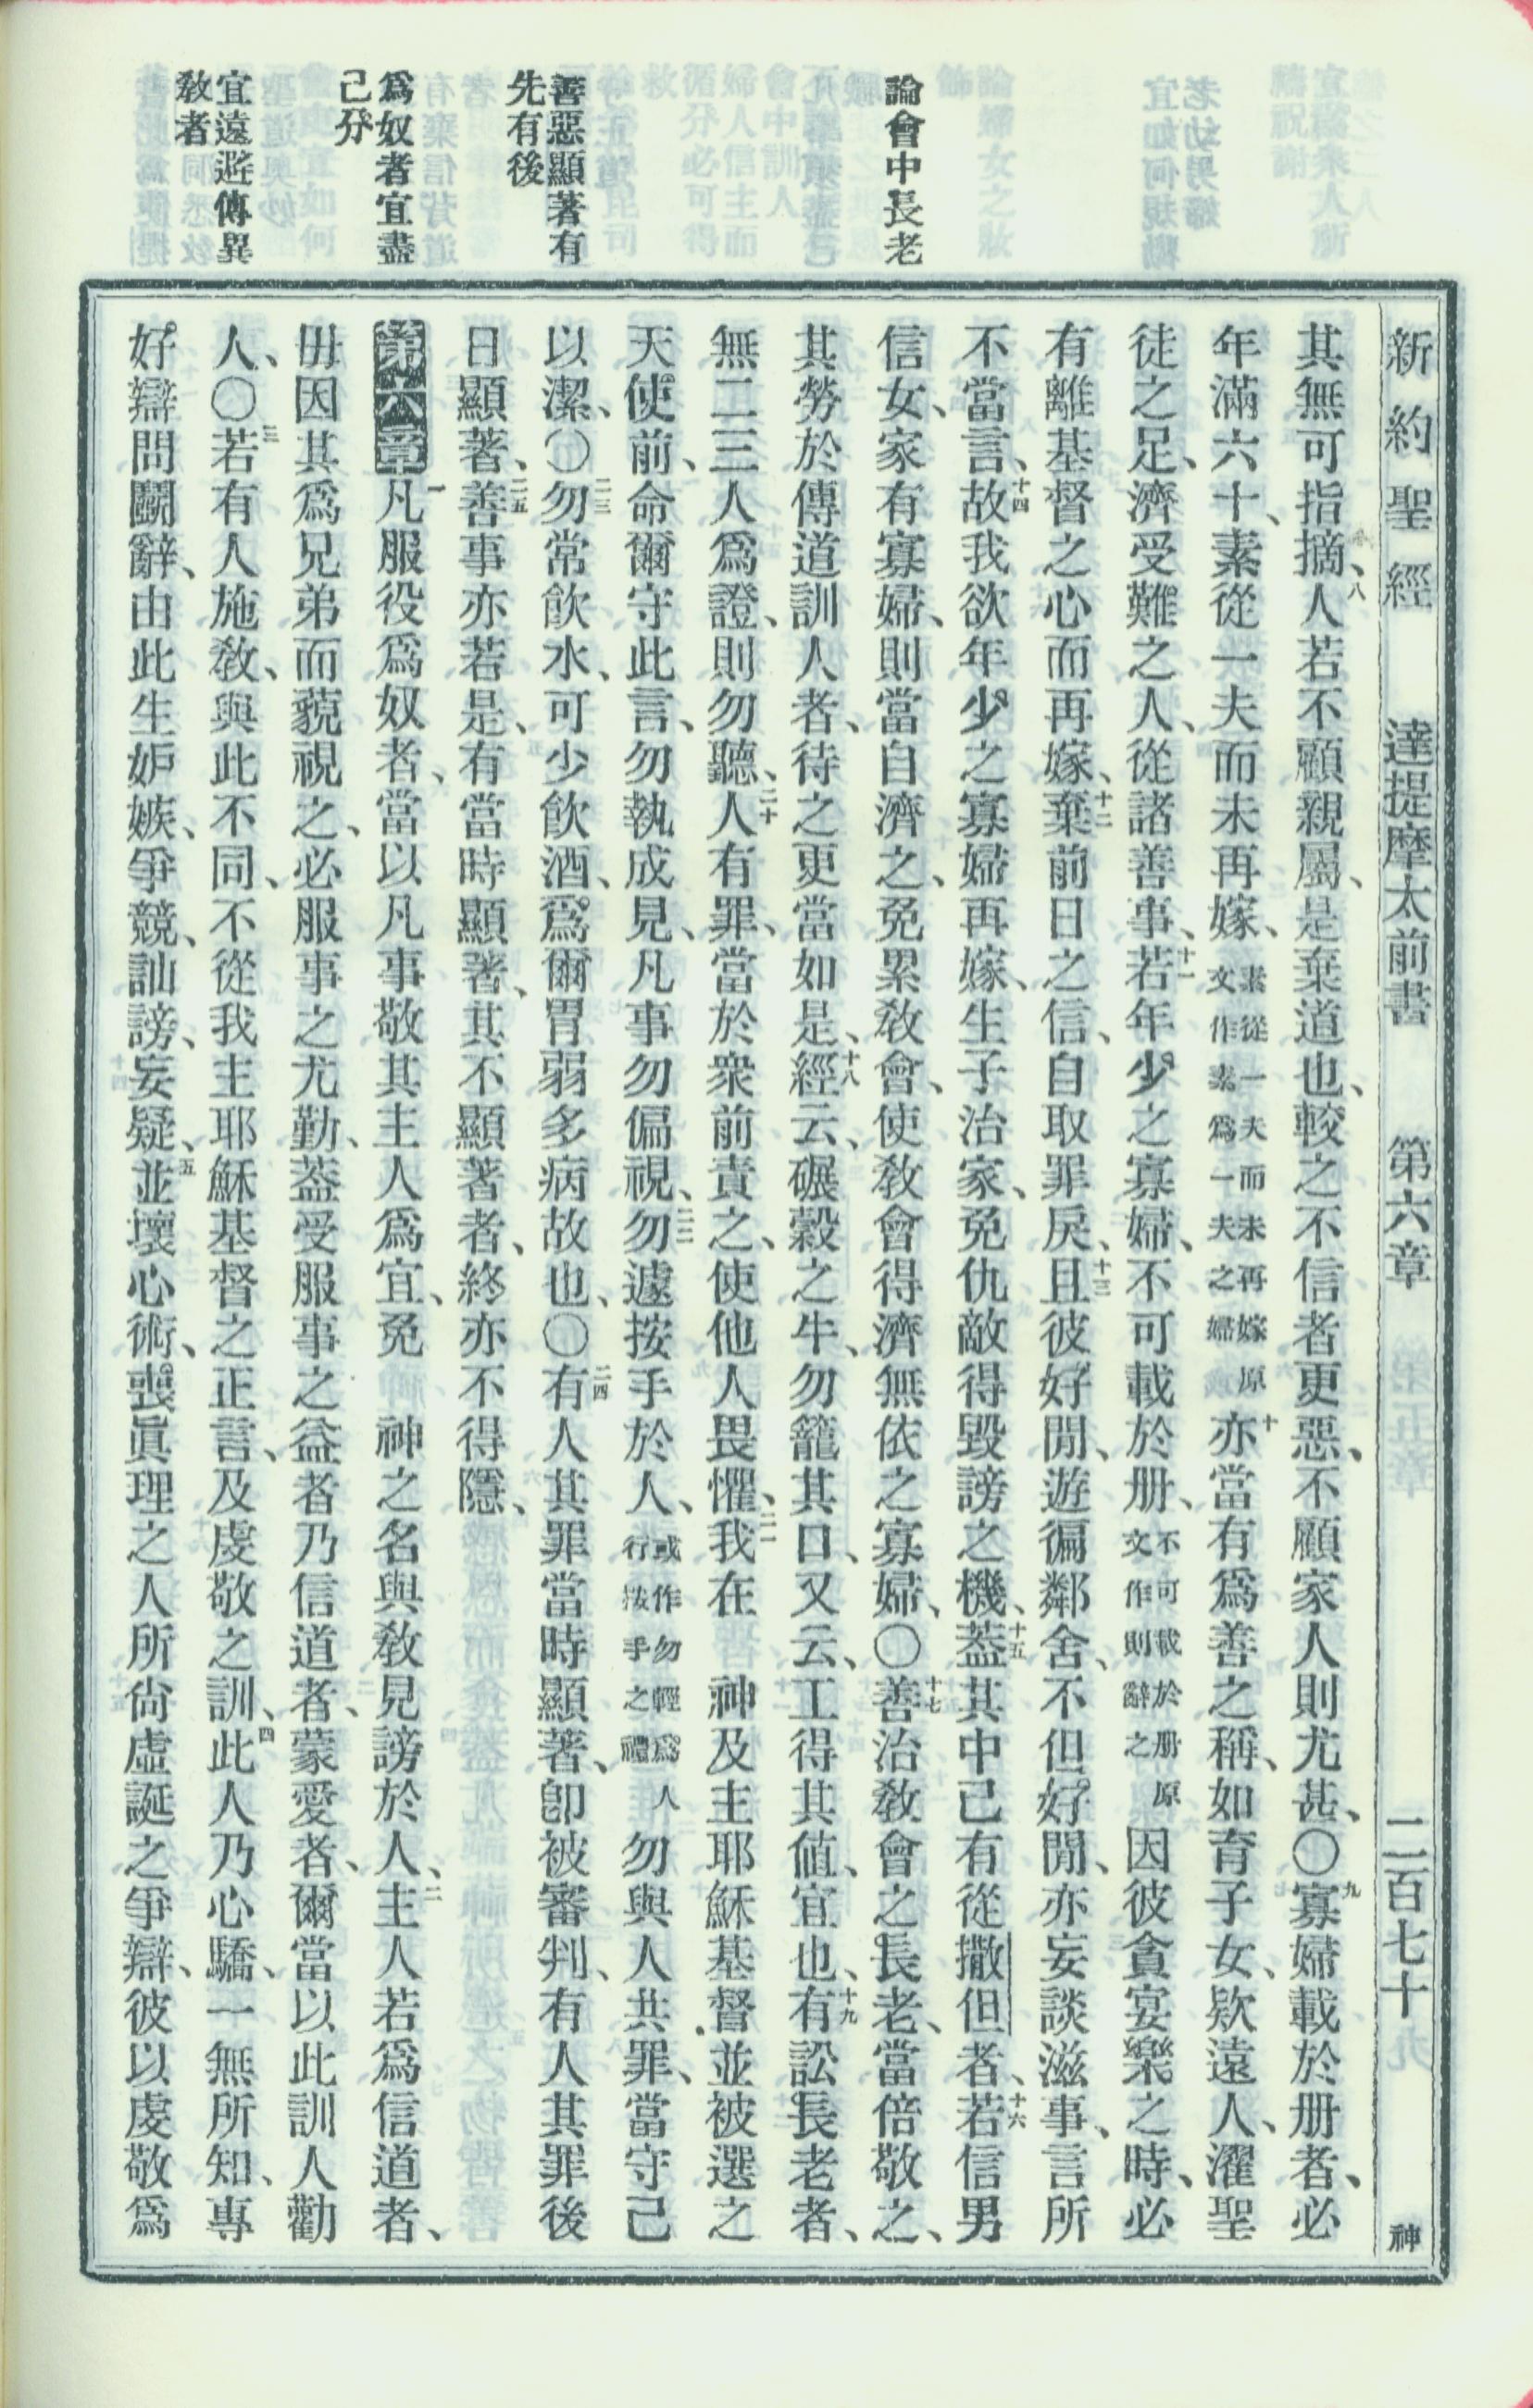 新約聖經　達提摩太前書　第六章　二百七十　神
論會中長老
善惡顯著有
先有後
爲奴者宜盡
己分
宜遠避傳異
敎者
其無可指摘、八人若不顧親屬、是棄道也、較之不信者更惡、不顧家人則尤甚、〇九寡婦載於册者、必
年滿六十、素從一夫而未再嫁、素從一夫而未再嫁原文作素爲一夫之婦十亦當有爲善之稱、如育子女、欵遠人、濯聖
徒之足、濟受難之人、從諸善事、十一若年少之寡婦、不可載於册、不可載於册原文作則辭之因彼貪宴樂之時、必
有離基督之心而再嫁、十二棄前日之信、自取罪戾、十三且彼好閒、遊徧鄰舍、不但好閒、亦妄談滋事、言所
不當言、十四故我欲年少之寡婦再嫁、生子治家、免仇敵得毀謗之機、十五蓋其中已有從撒但者、十六若信男
信女、家有寡婦、則當自濟之、免累敎會、使敎會得濟無依之寡婦、〇十七善治敎會之長老、當倍敬之、
其勞於傳道訓人者、待之更當如是、十八經云、碾穀之牛、勿籠其口、又云、工得其値、宜也、十九有訟長老者、
無二三人爲證、則勿聽、二十人有罪、當於衆前責之、使他人畏懼、二一我在　神及主耶穌基督、並被選之
天使前、命爾守此言、勿執成見、凡事勿偏視、二二勿遽按手於人、或作勿輕爲人行按手之禮勿與人共罪、當守己
以潔、〇二三勿常飲水、可少飲酒、爲爾胃弱多病故也、〇二四有人其罪當時顯著、卽被審判、有人其罪後
日顯著、二五善事亦若是、有當時顯著、其不顯著者、終亦不得隱、
第六章一凡服役爲奴者、當以凡事敬其主人爲宜、免　神之名與敎見謗於人、二主人若爲信道者、
毋因其爲兄弟而藐視之、必服事之尤勤、蓋受服事之益者乃信道者、蒙愛者、爾當以此訓人勸
人、〇三若有人施敎、與此不同、不從我主耶穌基督之正言、及虔敬之訓、四此人乃心驕、一無所知、專
好辯問鬬辭、由此生妒嫉、爭競、訕謗、妄疑、五並壞心術、喪眞理之人所尙虛誕之爭辯、彼以虔敬爲